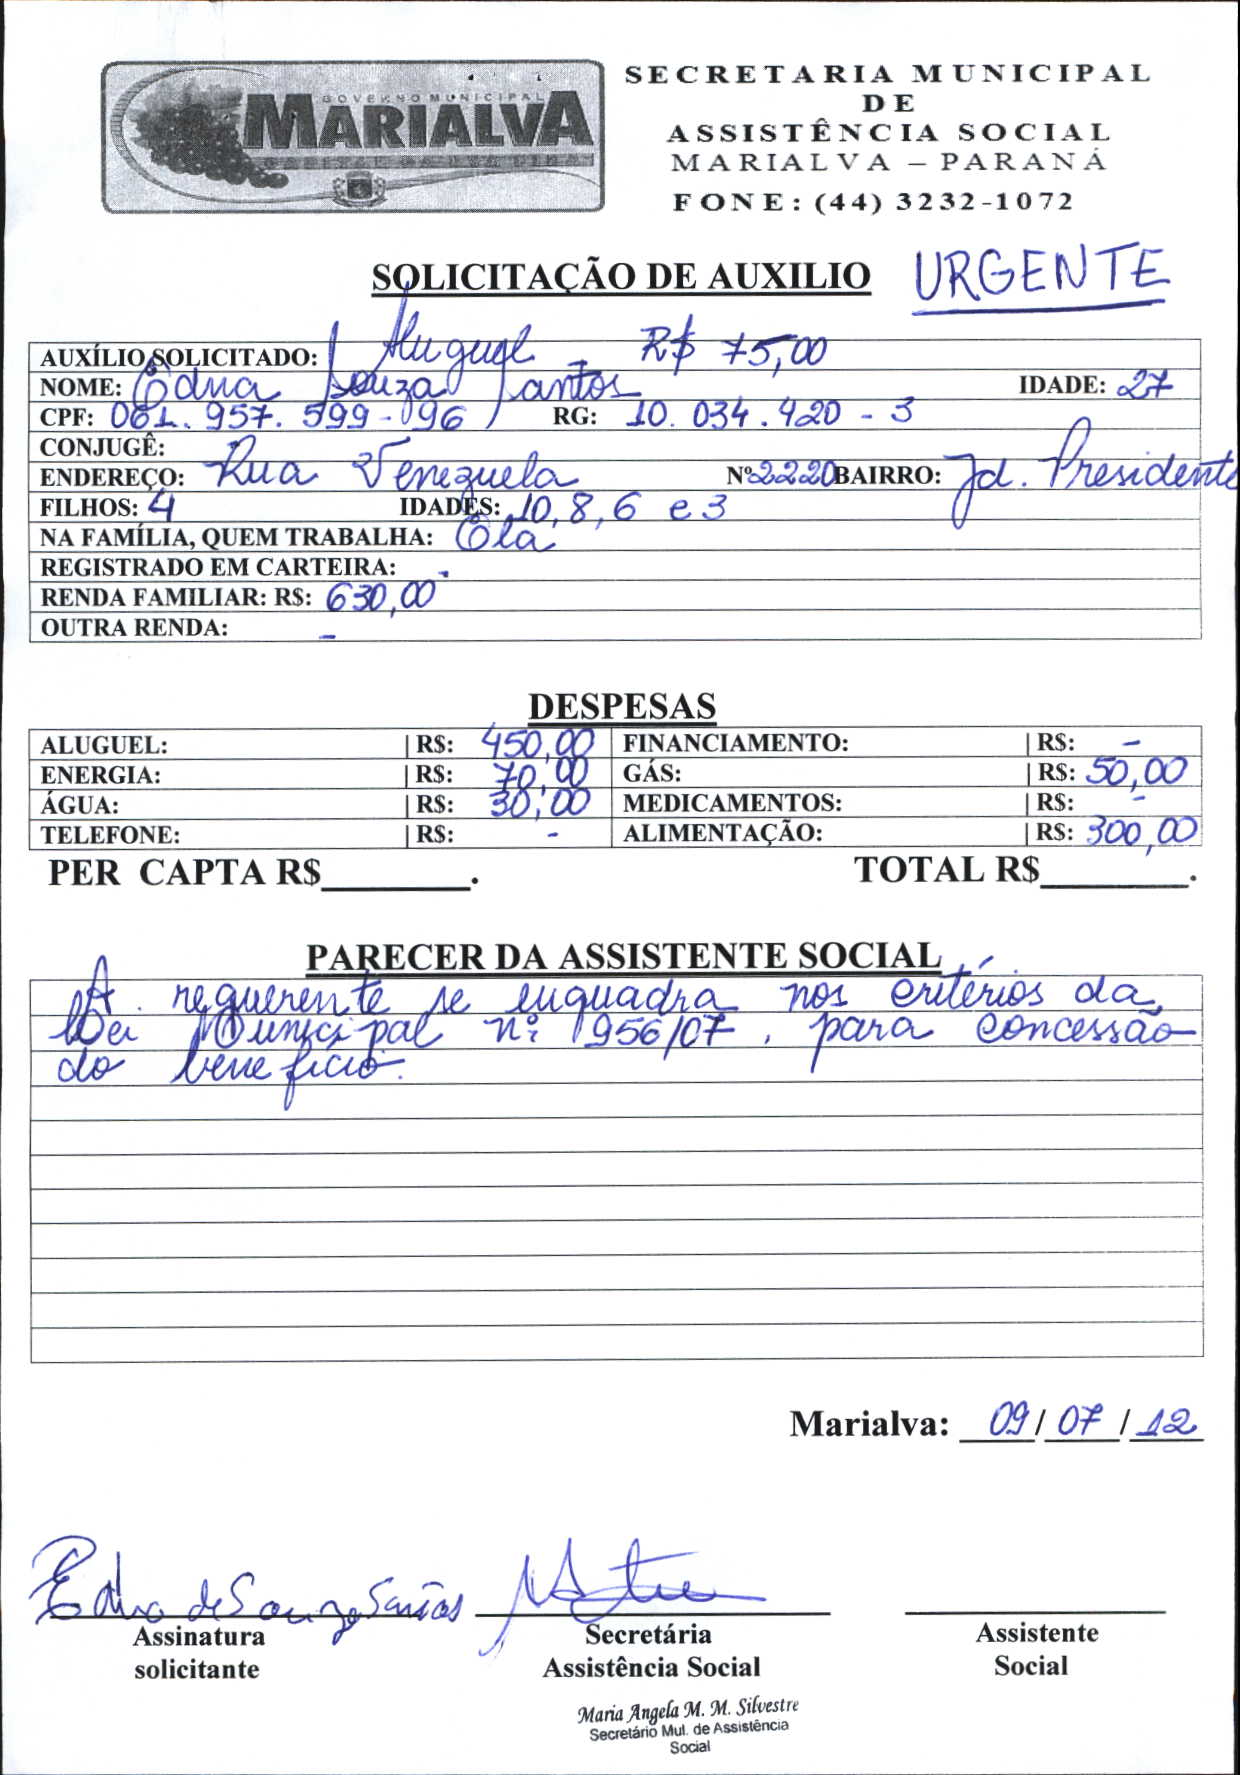 GOVERNO MUNICIPAL
MARIALVA
SECRETARIA MUNICIPAL
DE
ASSISTÊNCIA SOCIAL
MARIALVA – PARANÁ
FONE: (44) 3232-1072
SOLICITAÇÃO DE AUXILIO URGENTE
AUXÍLIO SOLICITADO: Aluguel - R$ 75,00
NOME: Edna Souza Santos IDADE: 27
CPF: 061.957.599-96 RG: 10.034.420-3
CONJUGÊ:
ENDEREÇO: Rua Venezuela Nº 2220 BAIRRO: Jd. Presidente
FILHOS: 4 IDADES: 10, 8, 6 e 3
NA FAMÍLIA, QUEM TRABALHA: Ela
REGISTRADO EM CARTEIRA: -
RENDA FAMILIAR: R$: 630,00
OUTRA RENDA: -
DESPESAS
ALUGUEL: | R$: 450,00 FINANCIAMENTO: | R$: -
ENERGIA: | R$: 70,00 GÁS: | R$: 50,00
ÁGUA: | R$: 30,00 MEDICAMENTOS: | R$: -
TELEFONE: | R$: - ALIMENTAÇÃO: | R$: 300,00
PER CAPTA R$________. TOTAL R$________.
PARECER DA ASSISTENTE SOCIAL
A requerente se enquadra nos critérios da
Lei Municipal nº 956/07, para concessão
do benefício.
Marialva: 09/07/12
Edna de Souza Santos
Assinatura Secretária Assistente
solicitante Assistência Social Social
Maria Angela M. M. Silvestre
Secretário Mul. de Assistência
Social